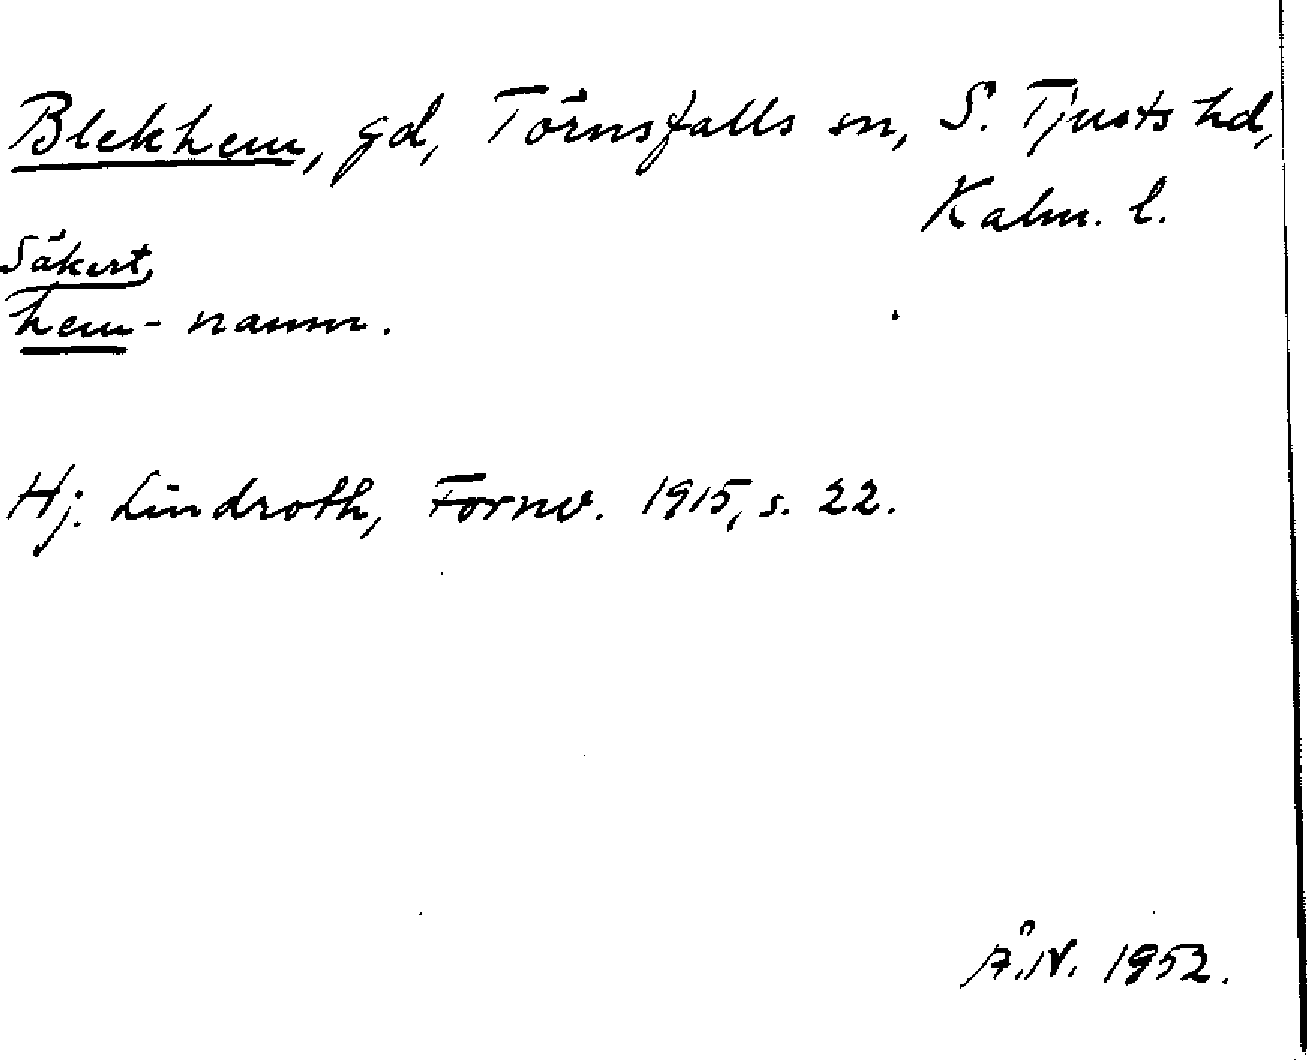 Blekhem, gd, Törnsfalls sn, S. Tjusts hd,
Kalm. l.
Säkert
hem-namn.
Hj. Lindroth, Fornv. 1915, s. 22.
Å.N. 1952.